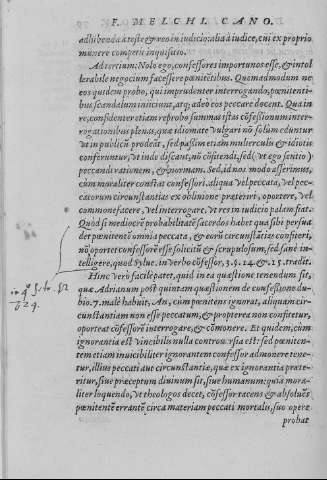 F. MELCHI. CANO.
adhibenda à teste & reo in iudicio: alia à iudice, cui ex proprio
munere competit inquisitio.
Ad tertium: Nolo ego, confessores importunos esse, & intol
lerabile negocium facessere pœnitẽtibus. Quemadmodum ne
eos quidem probo, qui imprudenter interrogando, pœnitenti-
bus scandalum iniiciunt, atq; adeò eos peccare docent. Qua in
re, considenter etiam reprobo summas istas cõfessionum inter-
rogationibus plenas, quæ idiomate vulgari nõ solum eduntur
vt in publicũ prodeãt, sed passim etiam mulierculis & idiotis
conferuntur, vt inde discant, nõ cõfitendi, sed (vt ego sentio)
peccandi rationem, & normam. Sed, id nos modo asserimus,
cùm moraliter constat confessori, aliqua vel peccata, vel pec-
catorum circunstantias ex obliuione præteriri, oportere, vel
commonefacere, vel interrogare, vt res in iudicio palam fiat.
Quod si mediocrẽ probabilitatẽ sacerdos habet qua sibi persua
det pœnitentẽ omnia peccata, & eorũ circunstãtias confiteri,
nõ oportet confessorẽ esse solicitũ & scrupulosum, sed sanè in-
telligere, quod Sylue. in verbo cõfessor, 3.§.24. & 25. tradit.
Hinc verò facilè patet, quid in ea quæstione tenendum sit,
quæ Adrianum post quintam quæstionem de confessione du-
bio. 7. malè habuit, An, cùm pœnitens ignorat, aliquam cir-
cunstantiam non esse peccatum, & propterea non confitetur,
oporteat cõfessorẽ interrogare, & cõmonere. Et quidem, cùm
ignorantia est vincibilis nulla controuersia est: sed pœniten-
tem etiam inuicibiliter ignorantem confessor admonere tene-
tur, illius peccati aut circunstantiæ, quæ ex ignorantia præte-
ritur, siue præceptum diuinum sit, siue humanum: quia mora-
liter loquendo, vt theologos decet, cõfessor tacens & absoluẽs
pœnitentẽ errantẽ, circa materiam peccati mortalis, suo opere
probat